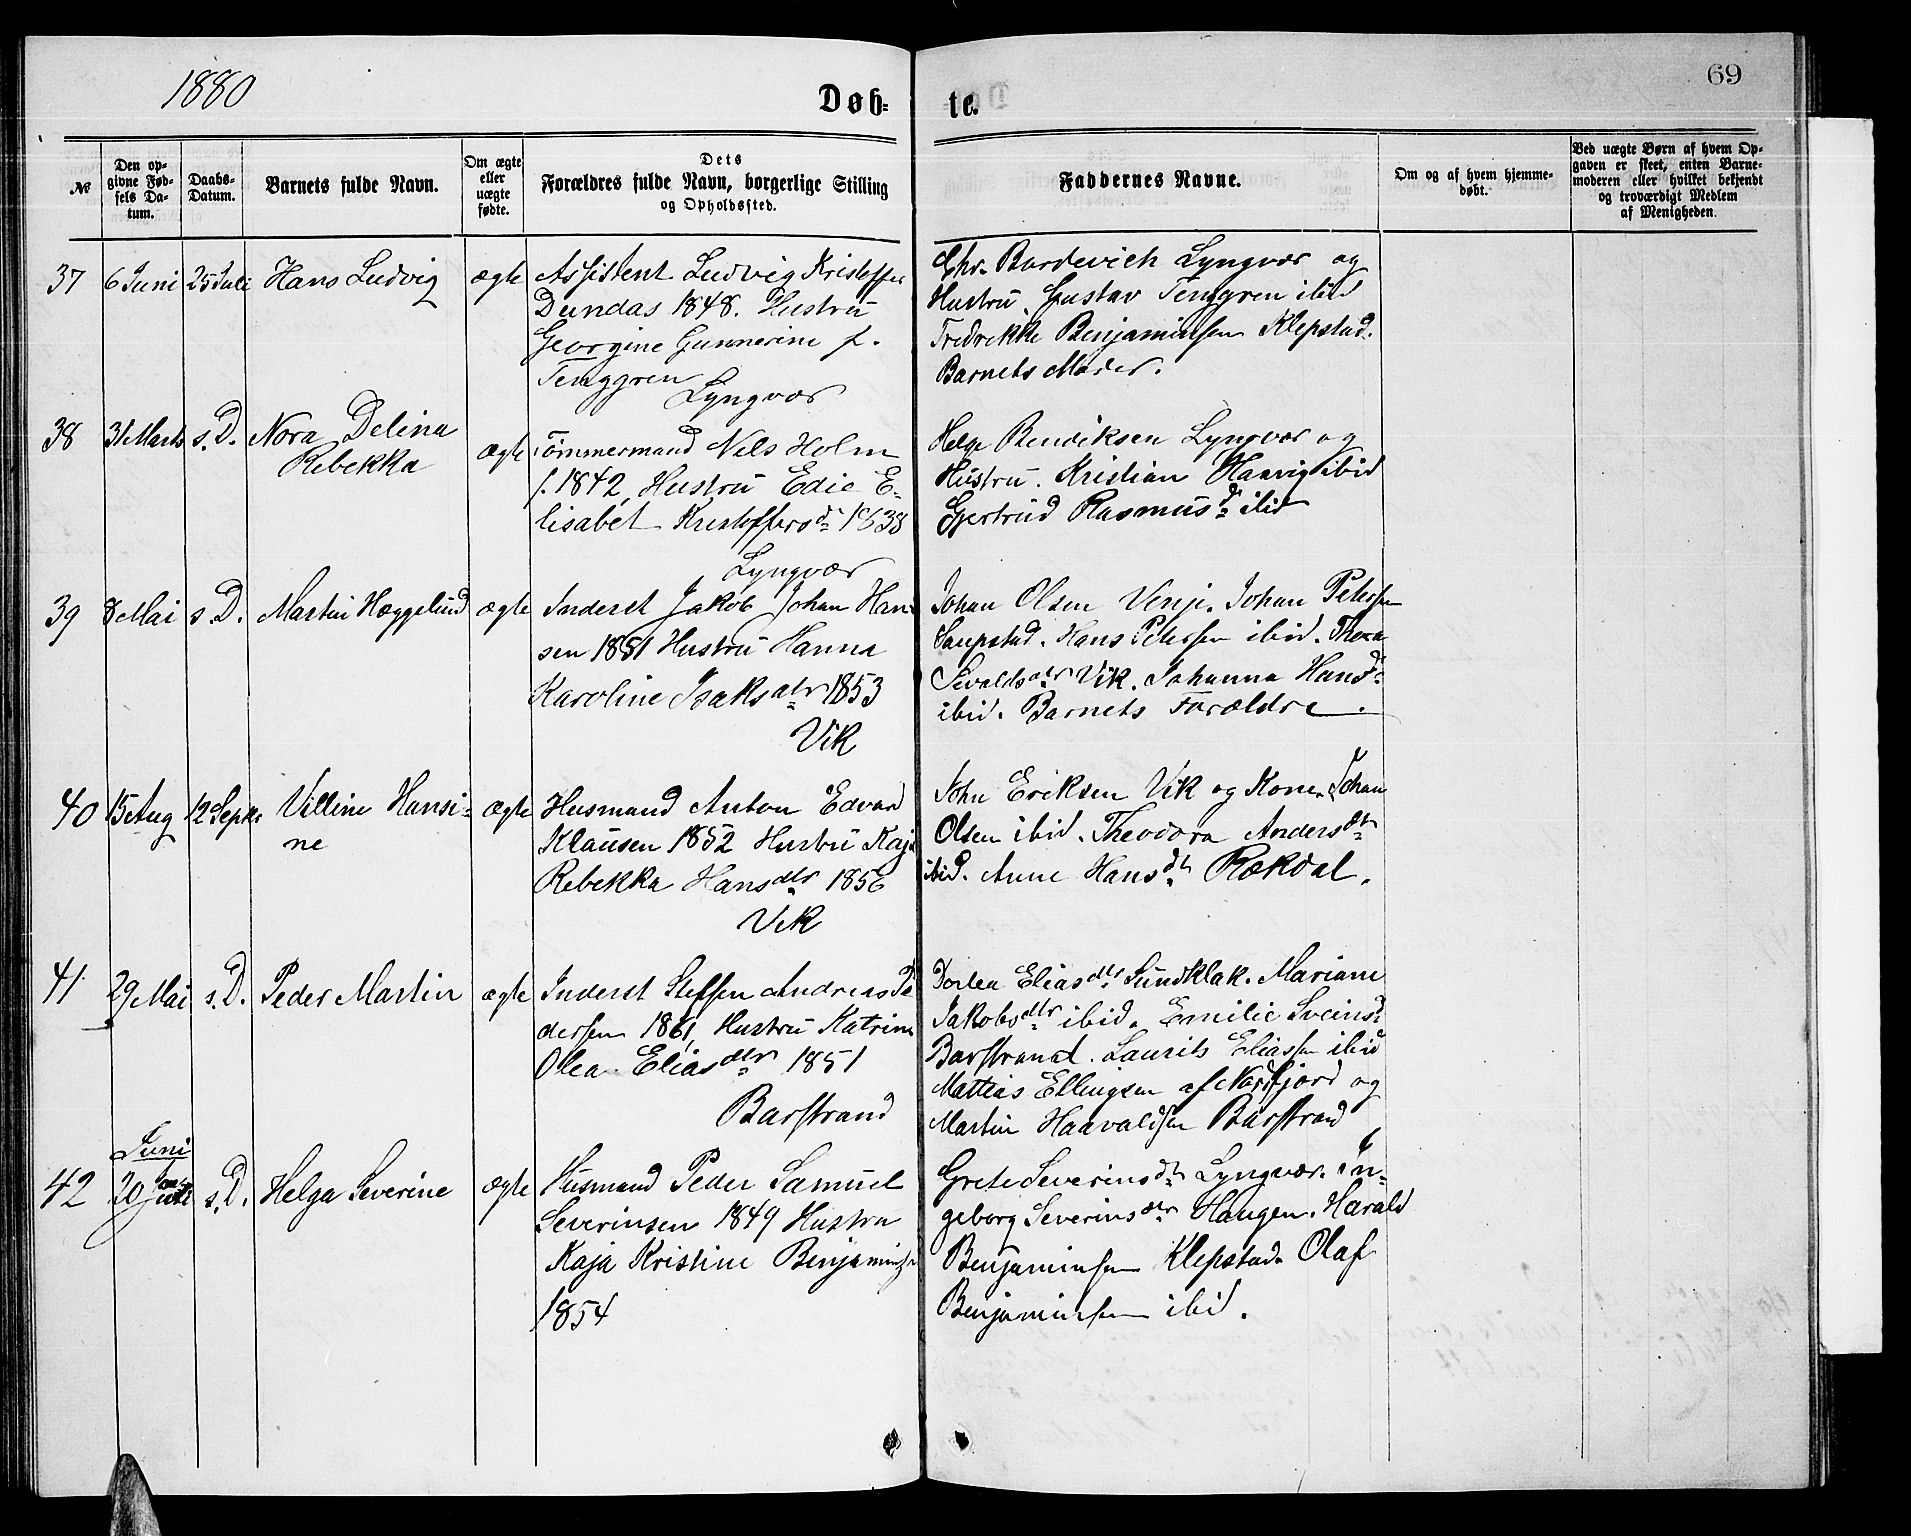 1880
69
Døb-
te.
№
Den op-
givne Fød-
sels Da-
tum.
Daabs-
Datum.
Barnets fulde Navn.
Om ægte
eller
uægte
fødte.
Dets
Forældres fulde Navn, borgerlige Stilling
og Opholdssted.
Faddernes Navne.
Om og af hvem hjemme-
døbt.
Ved uægte Børn af hvem Op-
gaven er skeet, enten Barne-
moderen eller hvilket bekjendt
og troværdigt Medlem
af Menigheden.
37 6 Juni 25 Juli Hans Ludvig ægte
Assistent Ludvig Kristoffer
Dundas 1848. Hustru
Georgine Gunnerine f.
Tenggren
Lyngvær
Chr. Bardevich Lyngvær og
Hustru. Gustav Tenggren ibid
Fredrekke Benjaminsen Klepstad.
Barnets Moder.
38 31 Marts s. D. Nora Delina
Rebekka
ægte
Tømmermand Nils Holm
f. 1842, Hustru Edie E-
lisabet Kristoffersd. 1838
Lyngvær
Helge Bendiksen Lyngvær og
Hustru. Kristian Haavig ibid
Gjertrud Rasmusd. ibid
39 8 Mai s. D. Martin Hæggelund ægte
Inderst Jakob Johan Han
sen 1851 Hustru Hanna
Karoline Isaksdtr 1853
Vik
Johan Olsen Venje. Johan Petersen
Saupstad. Hans Petersen ibid. Thora
Sevaldsdtr Vik. Johanna Hansd.
ibid. Barnets Forældre.
40 15 Aug 12 Septr Villine Hansi-
ne
ægte
Husmand Anton Edvard
Klausen 1852 Hustru Kaja
Rebekka Hansdtr 1856
Vik
John Eriksen Vik og Kone. Johan
Olsen ibid. Theodora Andersdtr
ibid. Anne Hansdtr Rækdal.
41 29 Mai s. D. Peder Martin ægte
Inderst Steffen Andreas Pe
dersen 1861, Hustru Katrine
Olea Eliasdtr 1851
Barstrand
Dorlea Eliasdtr Sundklak. Mariane
Jakobsdtr ibid. Emilie Sveinsd.
Barstrand. Laurits Eliassen ibid
Mattias Ellingsen af Nordfjord og
Martin Haavaldsen Barstrand
Juni
42 20 Juli s. D. Helga Severine ægte
Husmand Peder Samuel
Severinsen 1849 Hustru
Kaja Kristine Benjaminsen
1854
Grete Severinsdtr Lyngvær. In-
geborg Severinsdtr Haugen. Harald
Benjaminsen Klepstad. Olaf
Benjaminsen ibid.